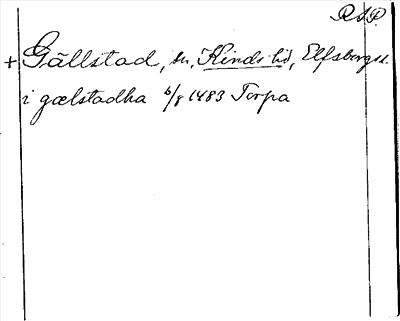 RSP
+ Gällstad, sn, Kinds hd, Elfsborgs l.
i gælstadha 6/8 1483 Torpa